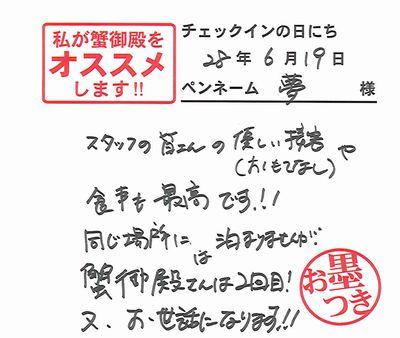 私が蟹御殿を
オススメ
します!!
チェックインの日にち
28年6月19日
ペンネーム 夢 様
スタッフの皆さんの優しい接客や
(おもてなし)
食事も最高です!!
同じ場所には泊まりませんが
蟹御殿さんは2回目!
又、お世話になります!!
お墨つき